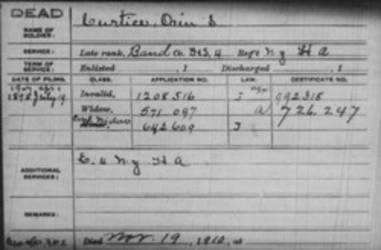 DEAD
NAME OF SOLDIER: Curtice, Orin S
SERVICE: Late rank, Band Co. F&S, 4 Reg't N.Y. H A
TERM OF SERVICE: Enlisted , 1 Discharged , 1
DATE OF FILING. CLASS. APPLICATION NO. LAW. CERTIFICATE NO.
1898 July 19 Invalid, 1208516 J
Widow, 571 097 726.247
642 609 J
ADDITIONAL SERVICES: N.Y. H A
REMARKS:
Died Nov. 19, 1910, at